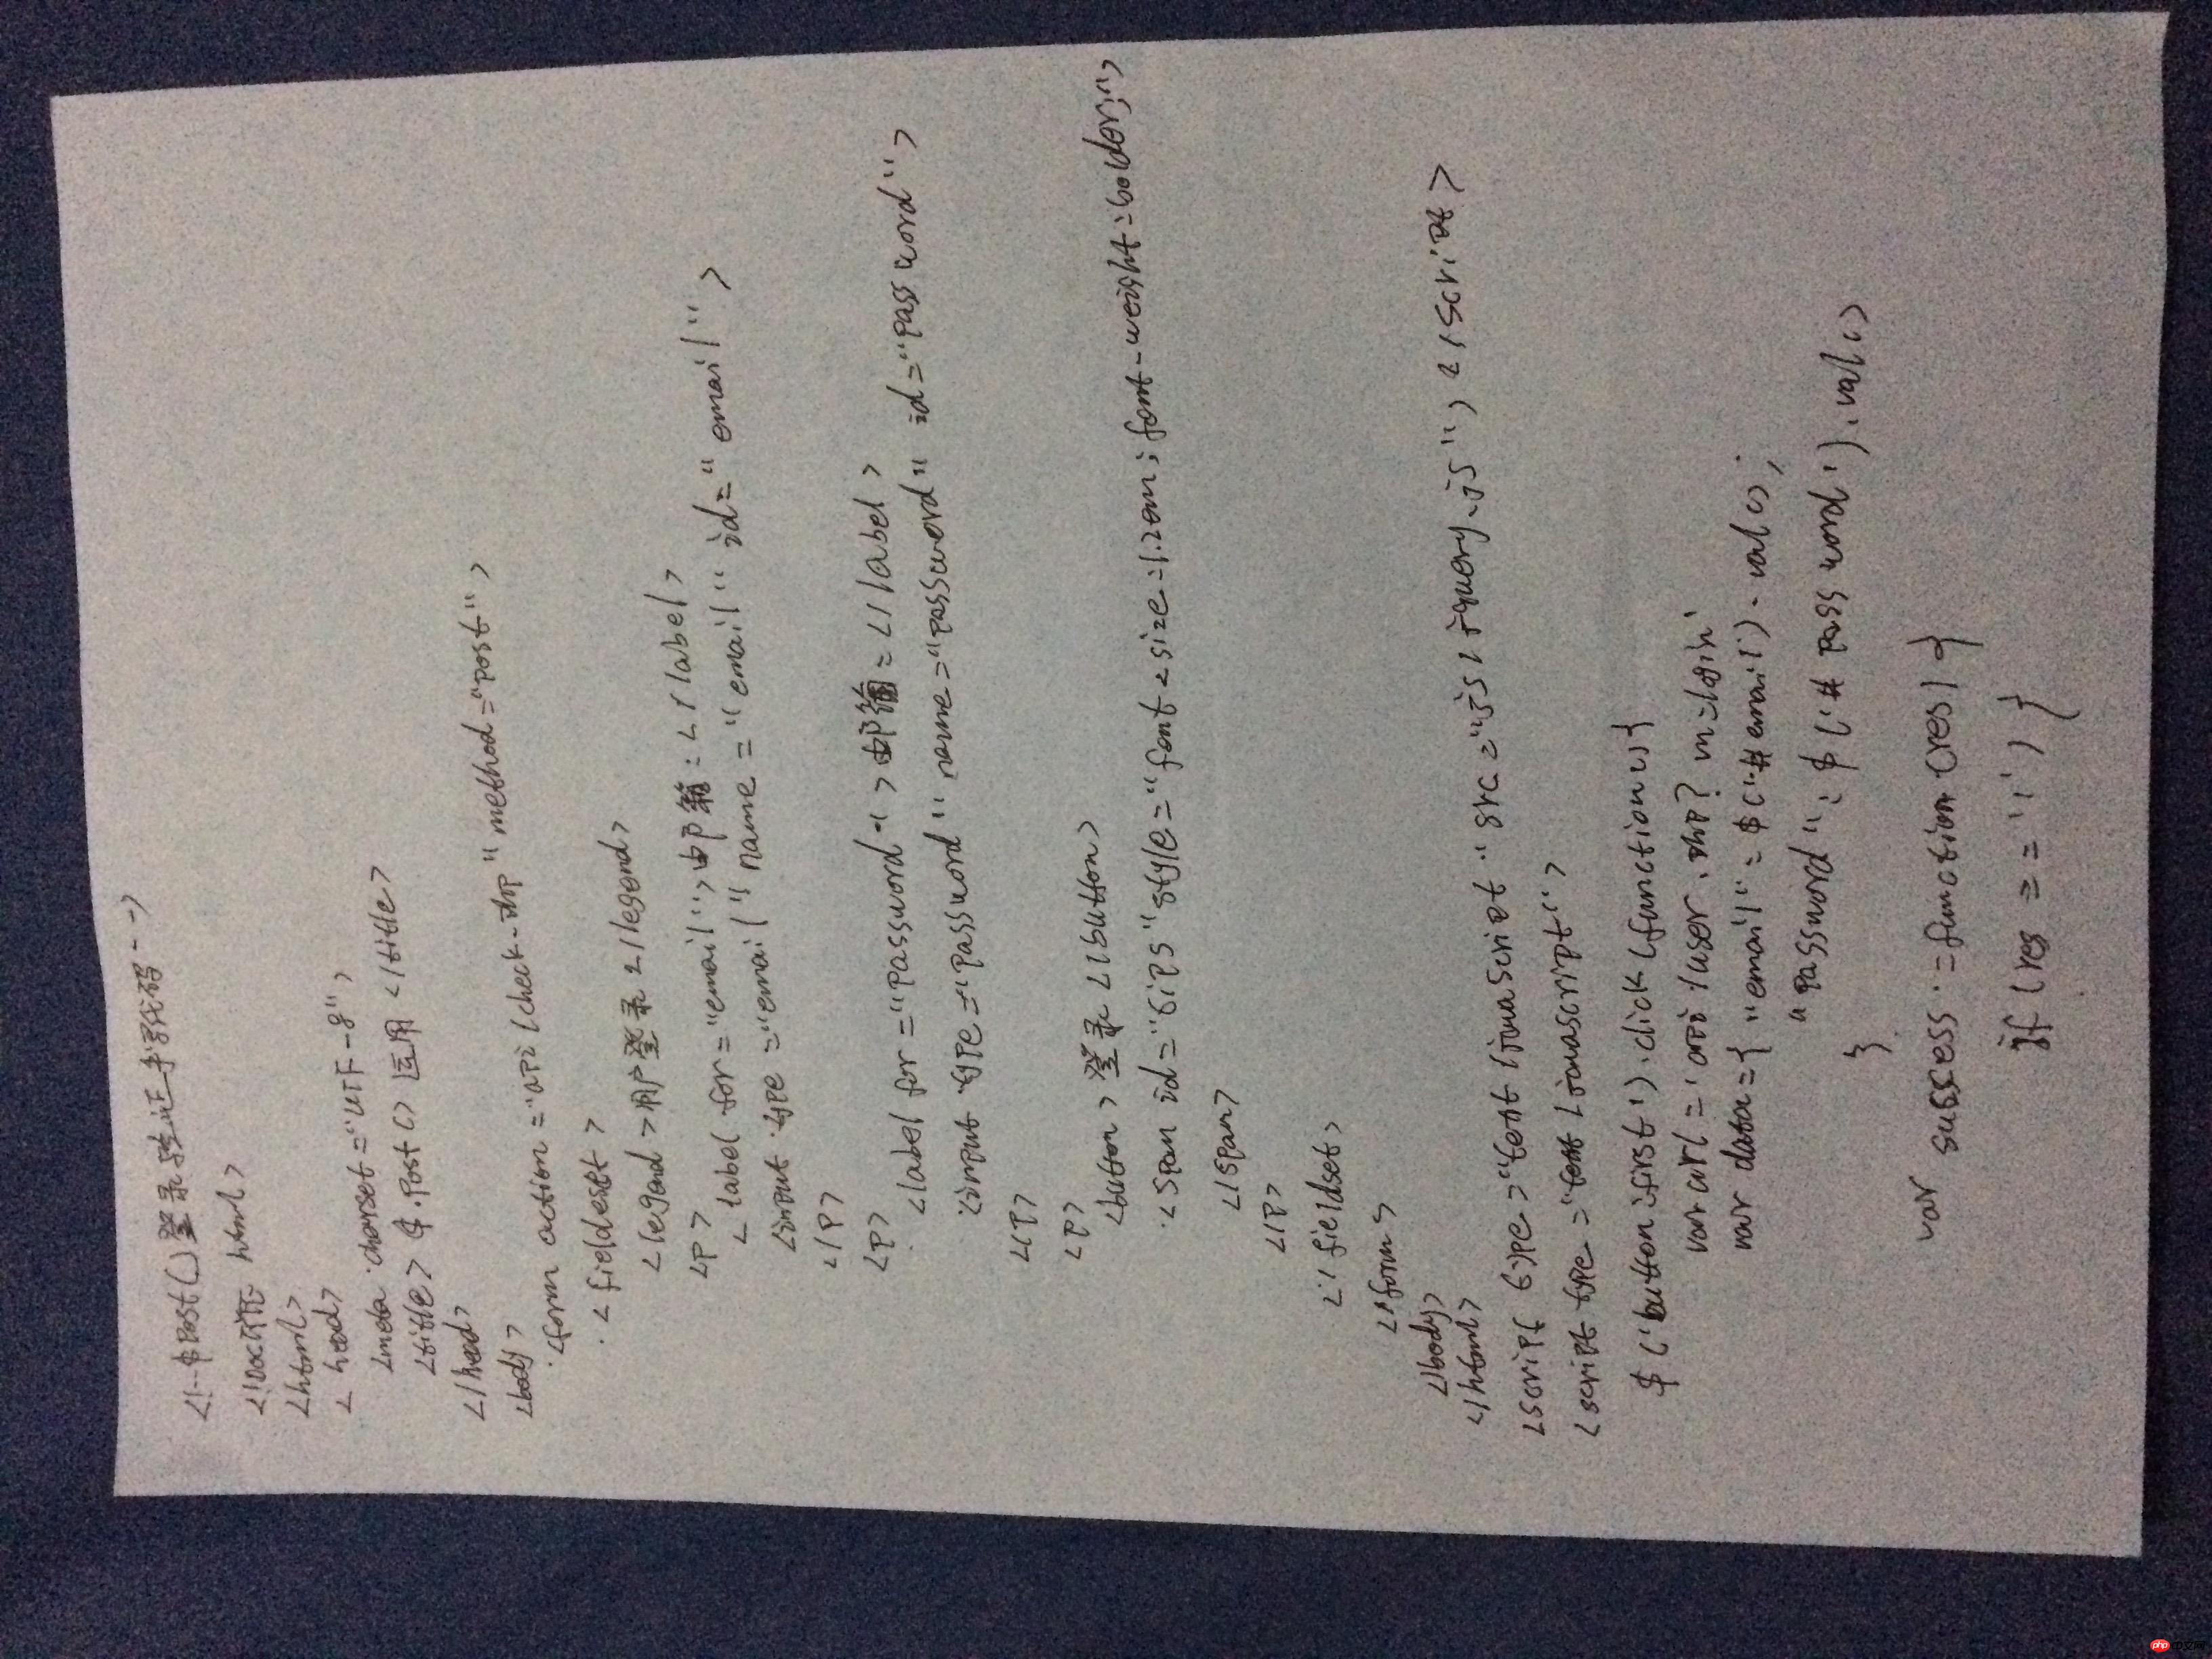 <!--$Post()登录验证手写代码-->
<!DOCTYPE html>
<html>
<head>
<meta charset="UTF-8">
<title>$.Post()应用</title>
</head>
<body>
<form action="api/check-php" method="post">
<fieldeset>
<legend>用户登录</legend>
<P>
<label for="email">邮箱:</label>
<input type="email" name="email" id="email">
</P>
<P>
<label for="password">邮箱:</label>
<input type="password" name="password" id="password">
</P>
<P>
<button>登录</button>
<span id="tips" style="font-size=1.2em; font-weight=bolder;">
</span>
</P>
</fieldset>
</form>
</body>
</html>
<script type="text/javascript" src="js/jquery.js"></script>
<script type="text/javascript">
$('button:first').click(function(){
var url='api/user.php?m=login'
var data={"email":$('#email').val();
"password":$('#password').val()
}
var success:=function(res){
if(res=='1'){
php